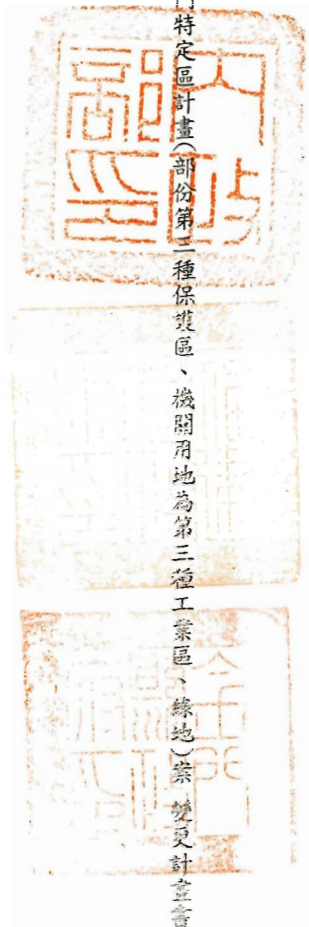 特定區計畫(部份第三種保護區、機關用地為第三種工業區、綠地)案 變更計畫書
內政部印
金門